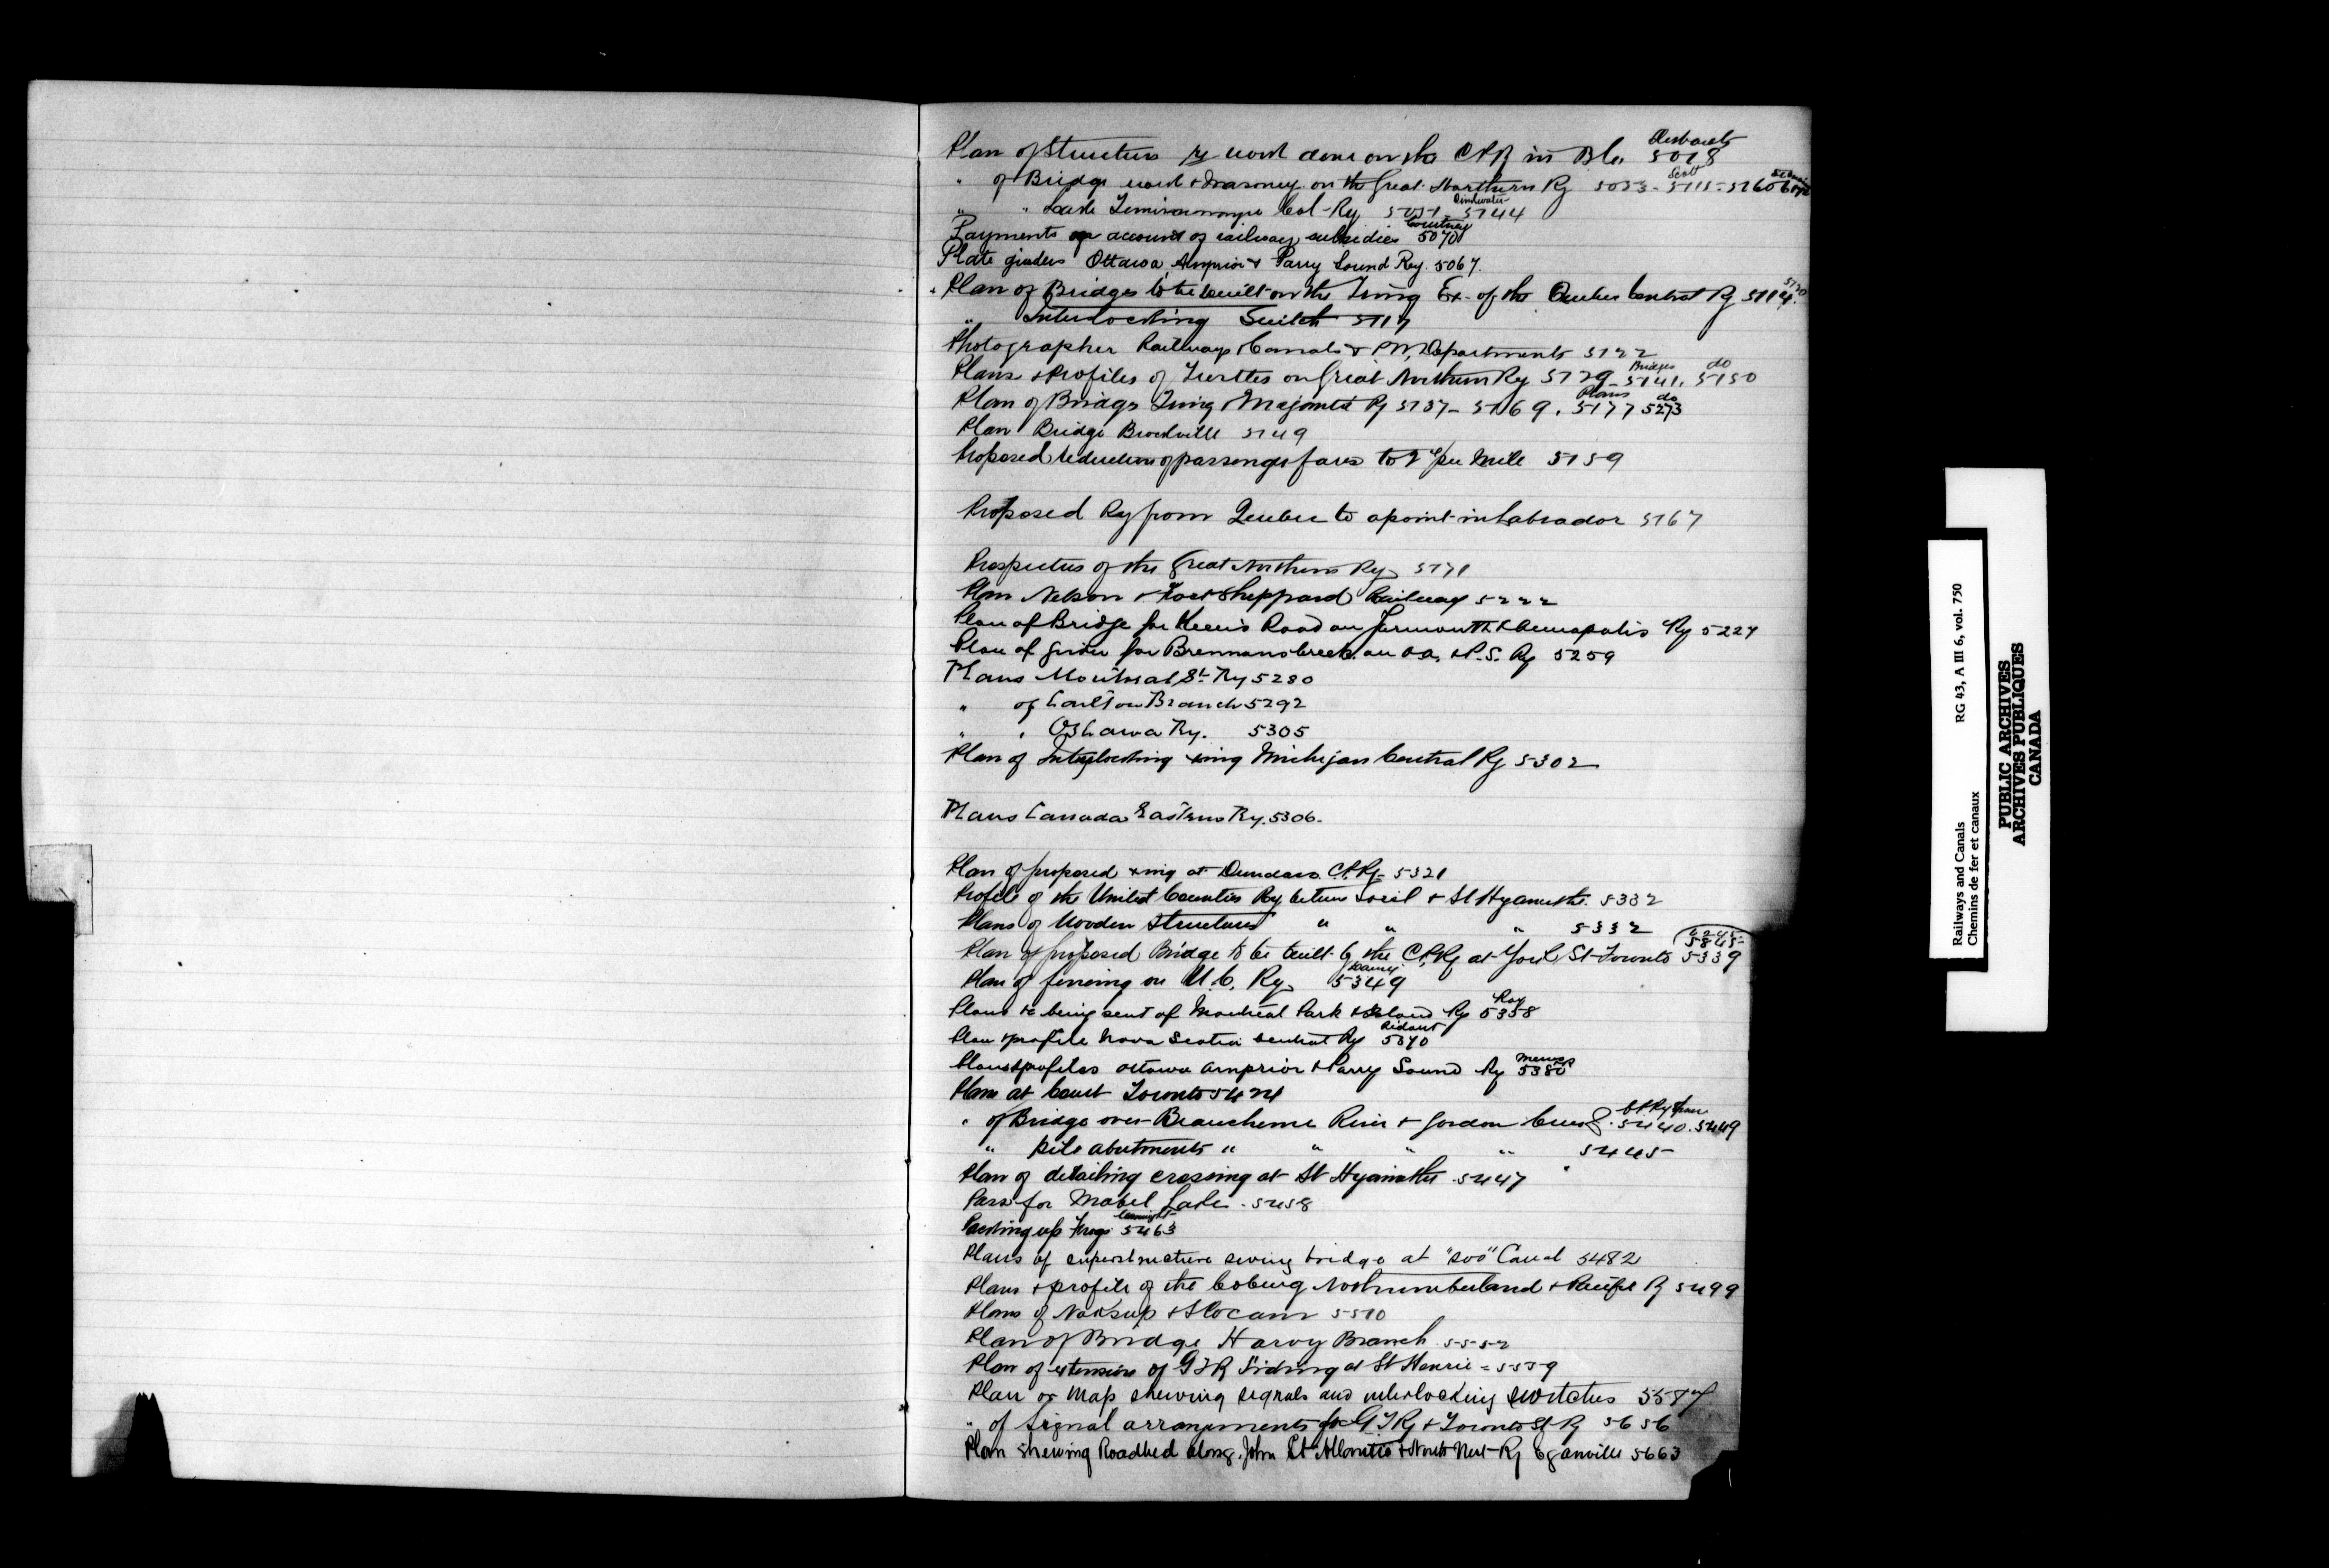 Plan of Structures re work done on the CPR in B.C. 5018
" of Bridge work & Masonry on the Great Northern Ry 5053 - 5111 - 5160
Scott
" " Lake Temiscamingue Col. Ry 5051 - 5144
Payments on account of railway subsidies 5070
Courtney
Plate girders Ottawa, Arnprior & Parry Sound Ry. 5067.
Plan of Bridges to be built on the Tring Ex. of the Quebec Central Ry 5114. 5120
" Interlocking Switch 5117
Photographer Railways & Canals & P.W. Departments 5122
Plans & Profiles of Trestles on Great Northern Ry 5129 - Bridges 5141, do 5150
Plan of Bridge Tring & Megantic Ry 5137 - 5169. Plans 5177 do 5273
Plan Bridge Brockville 5149
Proposed reduction of passenger fares to 2 c/ per Mile 5159
Proposed Ry from Quebec to a point in Labrador 5167
Prospectus of the Great Northern Ry 5171
Plan Nelson & Fort Sheppard Railway 5222
Plan of Bridge for Road on Yarmouth & Annapolis Ry 5227
Plan of girder for Brennans Creek on O.A. & P.S. Ry 5259
Plans Montreal St. Ry 5280
" of Carlton Branch 5292
" " Oshawa Ry. 5305
Plan of Interlocking xing Michigan Central Ry 5302
Plans Canada Eastern Ry. 5306.
Plan of proposed xing at Dundas C.P.Ry 5321
Profile of the United Counties Ry between Sorel & St Hyacinthe. 5332
Plans of Wooden Structures " " " 5332
Plan of proposed Bridge to be built by the C.P.Ry at York St Toronto 5339
Plan of fencing on U.C. Ry. 5349
Plans &c being sent of Montreal Park & Island Ry Roy 5358
Plan & profile Nova Scotia Central Ry Ridout 5370
Plans & profiles Ottawa Arnprior & Parry Sound Ry 5380
Plans at Court Toronto 5424
" of Bridge over Beauchene River & Gordon Creek C.P.Ry 5440. 5449
" Pile abutments " " " " 5445
Plan of detailing crossing at St Hyacinthe 5447
Pass for Mabel Lake 5458
Packing up frogs 5463
Plans of superstructure swing bridge at "Soo" Canal 5482
Plans & profile of the Cobourg Northumberland & Pacific Ry 5499
Plans of Nakusp & Slocan 5510
Plan of Bridge Harvy Branch 5552
Plan of extension of GTR Siding at St Henri = 5559
Plan or Map shewing signals and interlocking switches 5587
" of Signal arrangements for G T Ry & Toronto St Ry 5656
Plan shewing Roadbed along John St Atlantic & North West Ry Eganville 5663
Railways and Canals RG 43, A III 6, vol. 750
Chemins de fer et canaux
PUBLIC ARCHIVES
ARCHIVES PUBLIQUES
CANADA